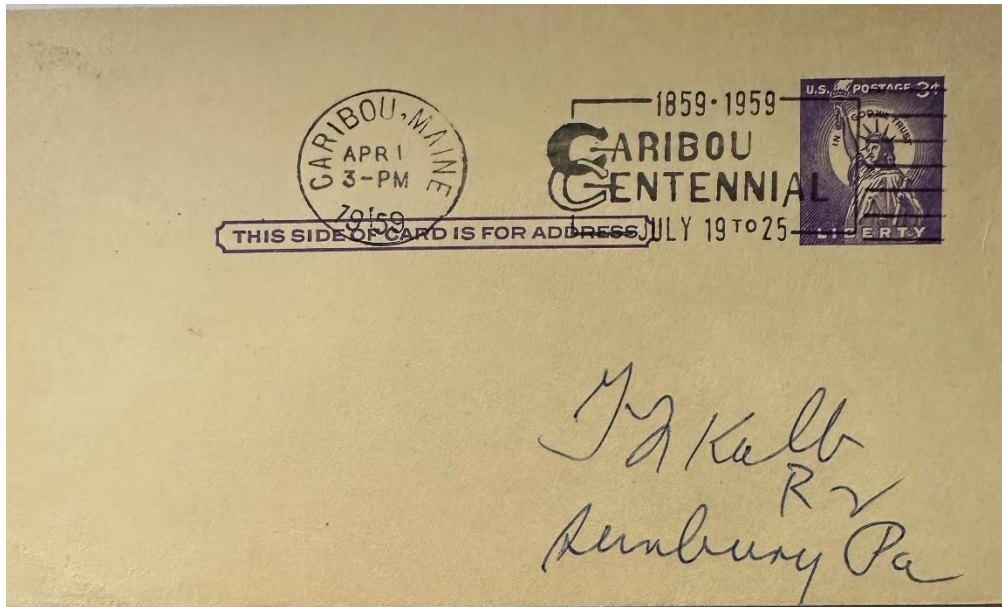 CARIBOU, MAINE
APR 1
3-PM
1959
1859 · 1959
CARIBOU
CENTENNIAL
JULY 19 TO 25
U.S. POSTAGE 3¢
IN GOD WE TRUST
LIBERTY
THIS SIDE OF CARD IS FOR ADDRESS
Kalb
R 2
Sunbury Pa